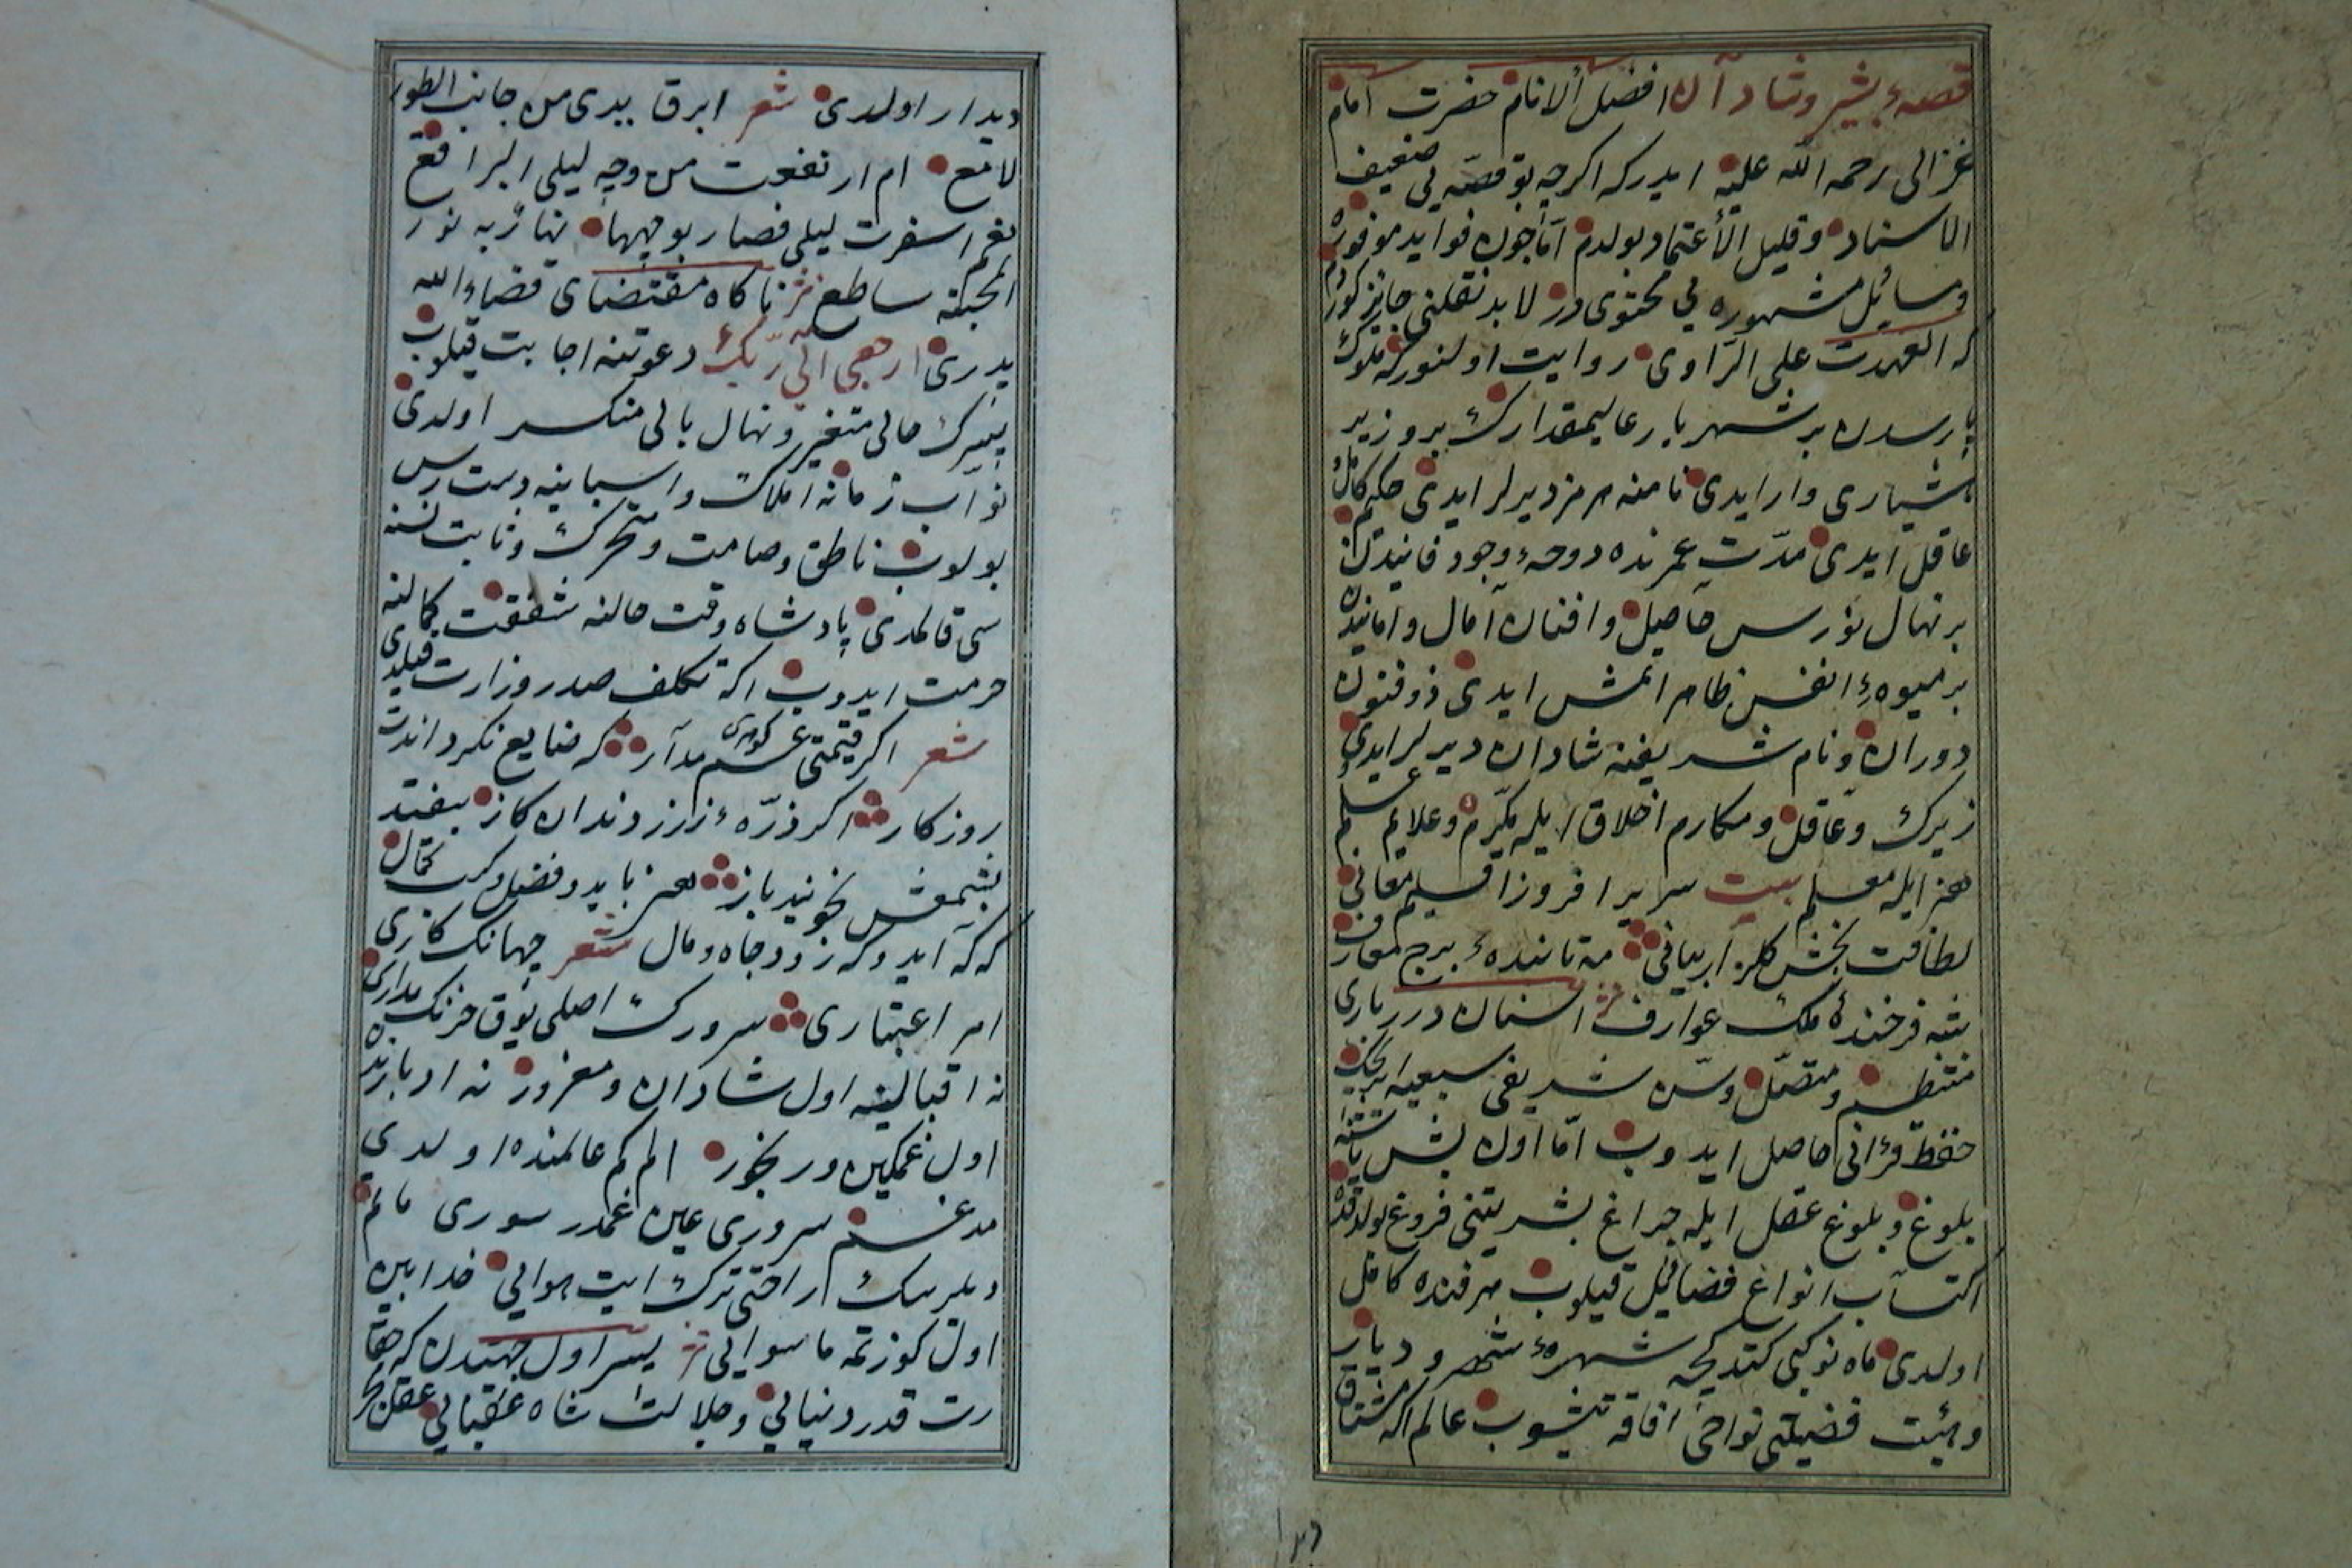 قصهء بشیر و شادآن افضل الانام حضرت امام
غزالی رحمه الله علیه ایدرکه اکرچه بو قصه یی ضعیف
الاسناد و قلیل الأعتماد بولدم امّا چون فواید موفوره
و مسائل مشهوره یی محتوی در لابد نقلنی جایز کوردم
که العهدت علی الرّاوی روایت اولنورکه ملوک
پارسدن بر شهریار عالیمقدارک بر وزیر
هشیاری وار ایدی نامنه هرمز دیرلر ایدی حکیم کامل و
عاقل ایدی مدّت عمرنده دوحهء وجود فانیدن
بر نهال نورس حاصل و افنان آمال و امانیدن
بر میوهء انفس ظاهر اتمش ایدی ذوفنون
دوران و نام شریفنه شادان دیرلر ایدی
زیرک و عاقل و مکارم اخلاق ایله مکرّم و علایم علم و
هنر ایله معلم بیت سریر افروز اقلیم معانی
لطافت بخش کلزار بیانی مه تابندهء برج معارف
شه فرخندهٔ ملک عوارف نثر اسنان درر باری
منتظم و متصّل و سن شریفی سبعیه ایریجک
حفظ قرٔانی حاصل ایدوب امّا اون بش یاشنه
بلوغ و بلوغ عقل ایله چراغ بشریتنی فروغ بولدقده
اکتساب انواع فضائیل قیلوب هر فنده کامل
اولدی ماه نو کبی کتدکجه شهرهء شهر و دیار
و هیٔت فضیلتی نواحیٔ افاقه یتیشوب عالم اکه مشتاق
دیدار اولدی شعر ابرق بدی من جانب الطور
لامع ام ارتفعت من وجه لیلی البراقع
نعم اسفرت لیلی فصار بوجهها نهاراً به نور
المحبته ساطع نثر ناکاه مقتضای قضاء الله
یدری ارجعی الی ربّک دعوتنه اجابت قیلوب
پسرک حالی متغیر و نهال بالی منکسر اولدی
نوآب زمانه املاک و اسبابینه دست رس
بولوب ناطق و صامت و متحرک و ثابت نسنه
سی قالمدی پادشاه وقت حالنه شفقت کمالنه
حرمت ایدوب اکه تکلف صدر وزارت قیلدی
شعر اکر قیمتی کوهری غم مدار که ضایع نکرداندت
روزکار اکر ذرّهء زر ز دندان کاز بیفتد
بشمعش بجویند باز هنر باید و فضل و کسب کمال
که که آید و که رود جاه و مال شعر جهانک کاری
امر اعتباری سرورک اصلی یوق حزنک مداری
نه اقبالینه اول شادان و مغرور نه ادبارنده
اول غمکین و رنجور الم کم عالمنده اولدی
مدغم سروری عین غمدر سوری ماتم
دیلرسک راحتی ترک ایت هوایی خدا بین
اول کوزتمه ماسوایی نثر پسر اول جهتدن که حقا
رت قدر دنیایی و جلالت شاه عقبایی عقل